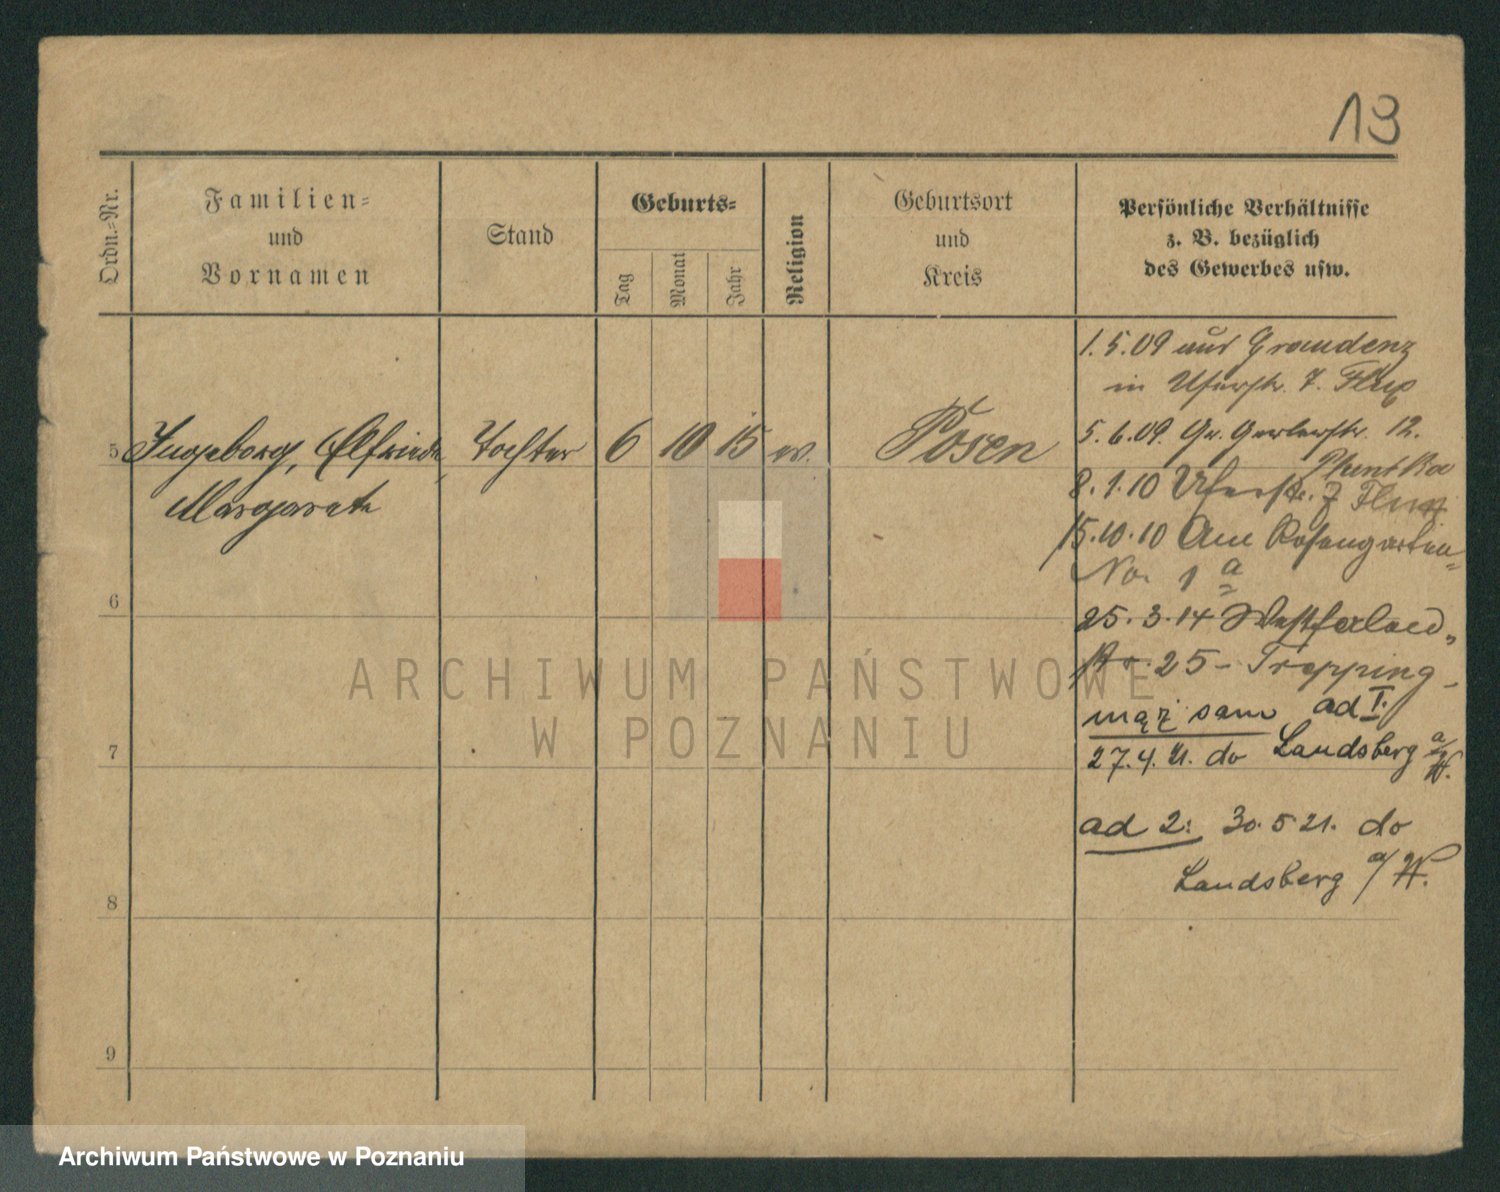 13
Ordn.=Nr.
Familien=
und
Vornamen
Stand
Geburts=
Tag
Monat
Jahr
Religion
Geburtsort
und
Kreis
Persönliche Verhältnisse
z. B. bezüglich
des Gewerbes usw.
1.5.09 aus Graudenz
in Uferstr. 7.
5.6.09. Gr. Gerberstr. 12.
5 Ingeborg, Elfriede, Tochter 6 10 15 ev. Posen
8.1.10 Uferstr. 7
Margarete
15.10.10 Am Rosengarten
No. 1 a
6
25.3.14 Westfalen
str. 25 -
mąż sam ad I.
7
27.4.21. do Landsberg a/W.
ad 2: 30.5 21. do
Landsberg a/W.
8
9
ARCHIWUM PAŃSTWOWE
W POZNANIU
Archiwum Państwowe w Poznaniu